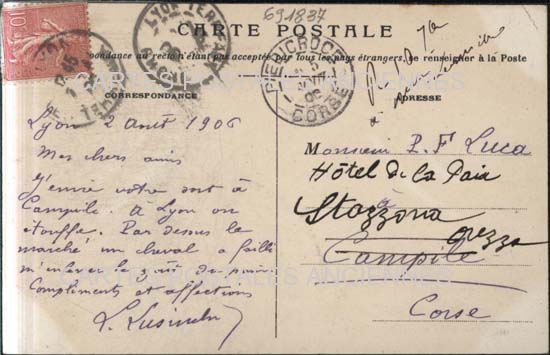 691837
CARTE POSTALE
La Correspondance au recto n'étant pas acceptée par tous les pays étrangers, se renseigner à la Poste
CORRESPONDANCE
ADRESSE
CARTES POSTALES ANCIENNES
LYON
PIEDICROCE
CORSE
Lyon 2 Août 1906
Mes chers amis
J'envie votre sort à
Campile. A Lyon on
étouffe. Par dessus le
marché un cheval a failli
m'enlever le goût du pain
Compliments et affections
Monsieur P. F Luca
Hôtel de la Paix
à
Stazzona
Orezza
Campile
Corse
CARTES POSTALES ANCIENNES